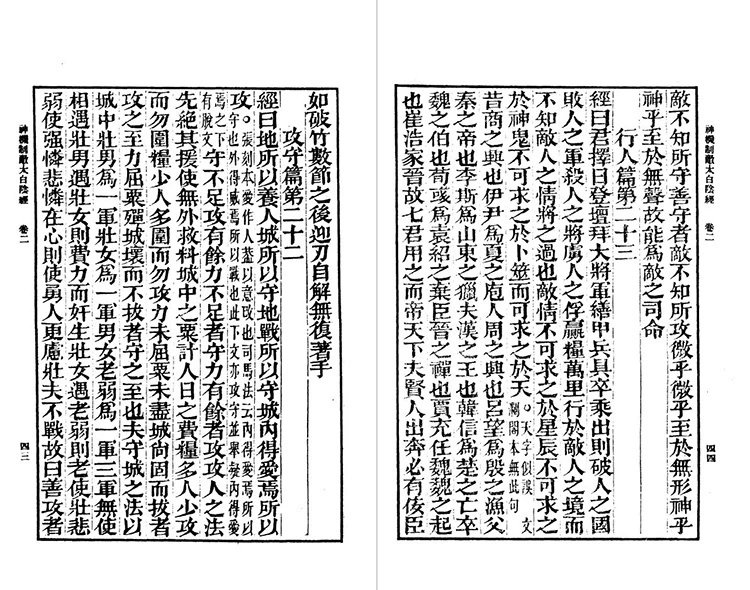 神機制敵太白陰經　卷二
如破竹數節之後迎刃自解無復著手
攻守篇第二十二
經曰地所以養人城所以守地戰所以守城內得愛焉所以
攻。張刻本愛作人蓋以意改也司馬法云內得愛焉所以
守也外得威焉所以戰也此下文亦攻守並舉疑內得愛
焉之下有脫文守不足攻有餘力不足者守力有餘者攻攻人之法
先絕其援使無外救料城中之粟計人日之費糧多人少攻
而勿圍糧少人多圍而勿攻力未屈粟未盡城尚固而拔者
攻之至力屈粟殫城壞而不拔者守之至也夫守城之法以
城中壯男爲一軍壯女爲一軍男女老弱爲一軍三軍無使
相遇壯男遇壯女則費力而奸生壯女遇老弱則老使壯悲
弱使强憐悲憐在心則使勇人更慮壯夫不戰故曰善攻者
四三
神機制敵太白陰經　卷二
敵不知所守善守者敵不知所攻微乎微乎至於無形神乎
神乎至於無聲故能爲敵之司命
行人篇第二十三
經曰君擇日登壇拜大將軍繕甲兵具卒乘出則破人之國
敗人之軍殺人之將虜人之俘贏糧萬里行於敵人之境而
不知敵人之情將之過也敵情不可求之於星辰不可求之
於神鬼不可求之於卜筮而可求之於天。天字似誤文瀾閣本無此句
昔商之興也伊尹爲夏之庖人周之興也呂望爲殷之漁父
秦之帝也李斯爲山東之獵夫漢之王也韓信爲楚之亡卒
魏之伯也荀彧爲袁紹之棄臣晉之禪也賈充任魏魏之起
也崔浩家晉故七君用之而帝天下夫賢人出奔必有佞臣
四四